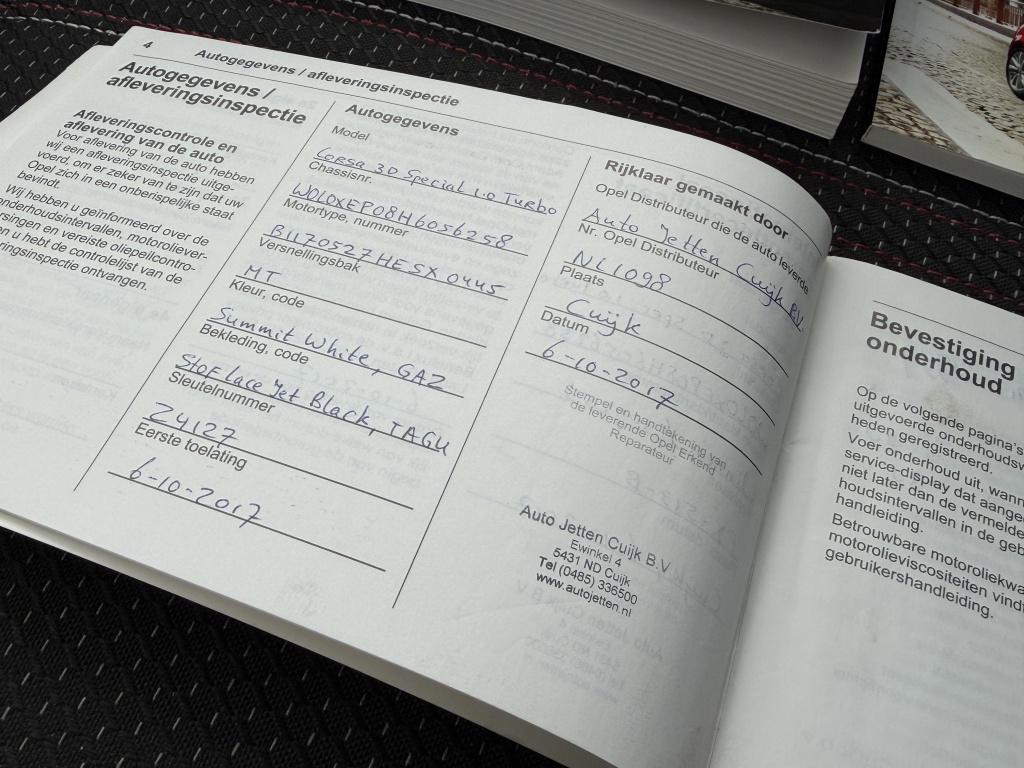 4
Autogegevens / afleveringsinspectie
Autogegevens /
afleveringsinspectie
Afleveringscontrole en
aflevering van de auto
Voor aflevering van de auto hebben
wij een afleveringsinspectie uitge-
voerd, om er zeker van te zijn dat uw
Opel zich in een onberispelijke staat
bevindt.
Wij hebben u geïnformeerd over de
onderhoudsintervallen, motoroliever-
rsingen en vereiste oliepeilcontro-
n u hebt de controlelijst van de
ringsinspectie ontvangen.
Autogegevens
Model
Corsa 3D Special 1.0 Turbo
Chassisnr.
W0L0XEP08H6056258
Motortype, nummer
B1170527HESX0445
Versnellingsbak
MT
Kleur, code
Summit White, GAZ
Bekleding, code
Stof lace Jet Black, TAGU
Sleutelnummer
Z4127
Eerste toelating
6-10-2017
Rijklaar gemaakt door
Opel Distributeur die de auto leverde
Auto Jetten Cuijk B.V.
Nr. Opel Distributeur
NL1098
Plaats
Cuijk
Datum
6-10-2017
Stempel en handtekening van
de leverende Opel Erkend
Reparateur
Auto Jetten Cuijk B.V.
Ewinkel 4
5431 ND Cuijk
Tel (0485) 336500
www.autojetten.nl
Bevestiging
onderhoud
Op de volgende pagina's
uitgevoerde onderhoudsw
heden geregistreerd.
Voer onderhoud uit, wann
service-display dat aange
niet later dan de vermelde
houdsintervallen in de geb
handleiding.
Betrouwbare motoroliekwa
motorolieviscositeiten vindt
gebruikershandleiding.